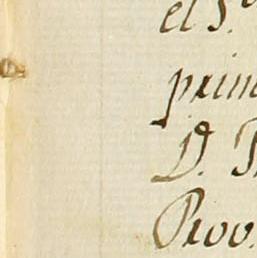 el S.
prim
D.
Prov.